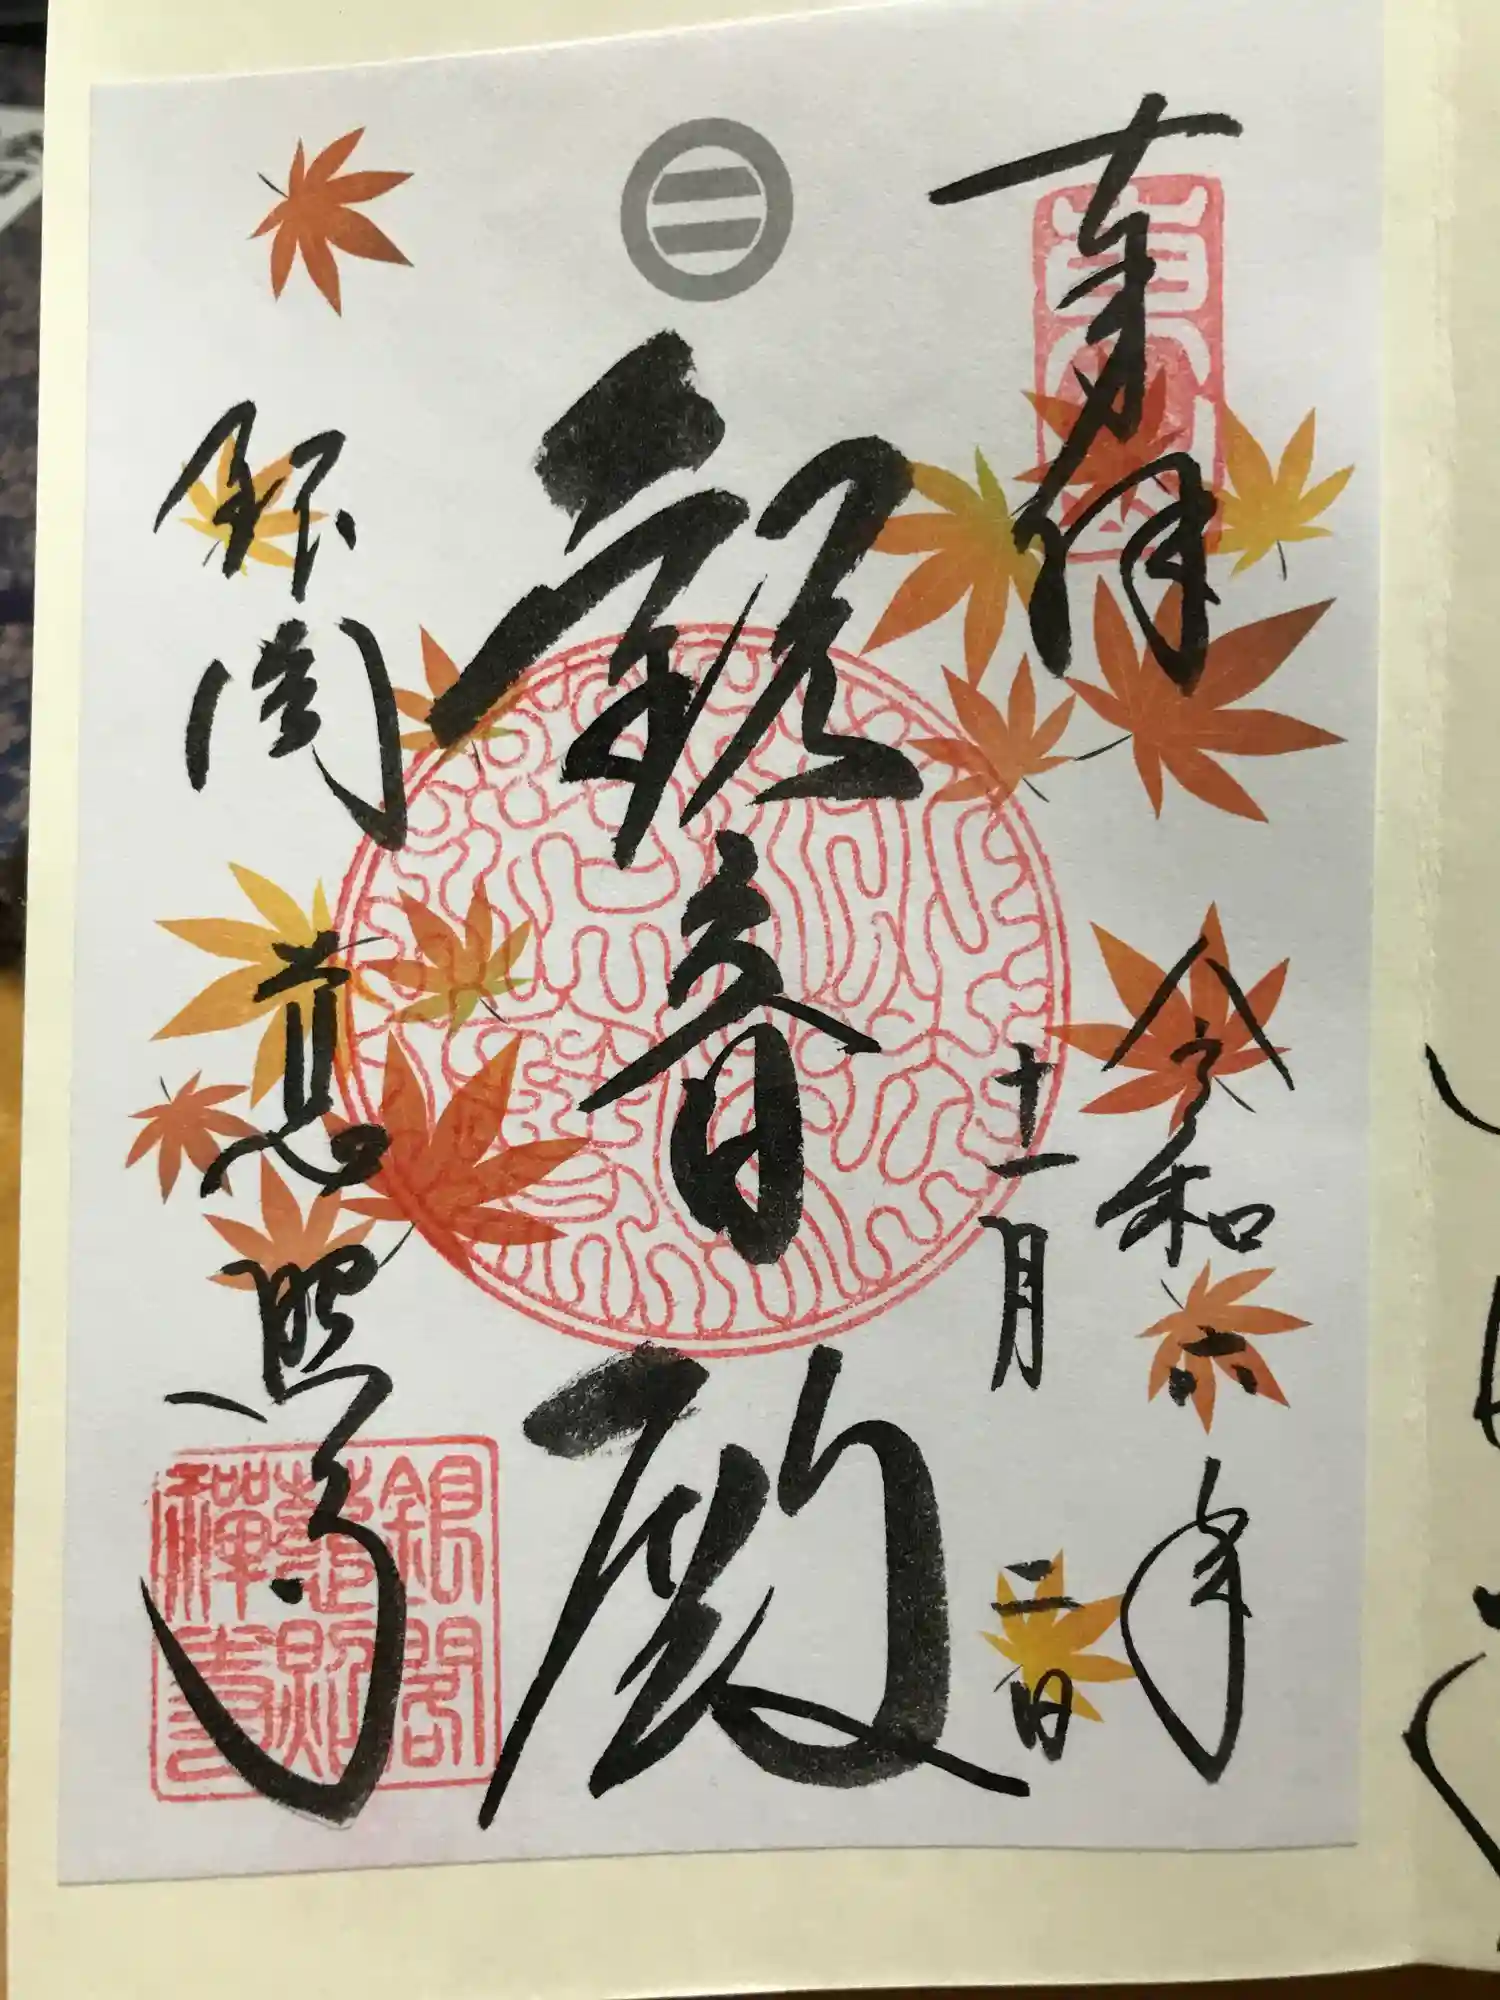 奉拝
令和六年
十一月二日
観音殿
銀閣慈照寺
銀閣
慈照
禅寺